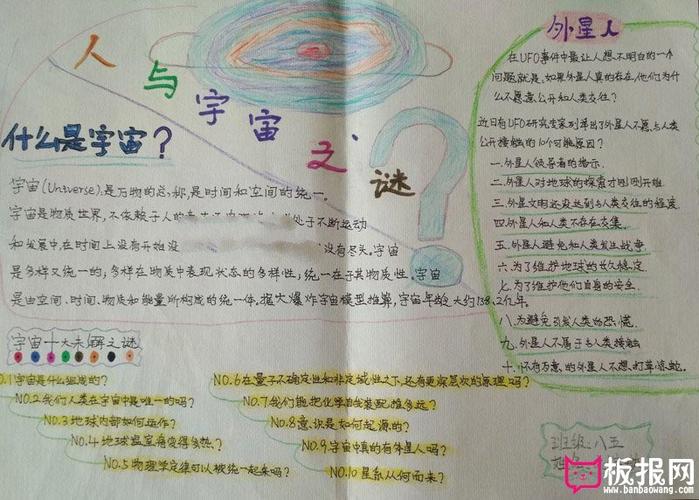 人与宇宙之谜
什么是宇宙?
宇宙(Universe)是万物的总称,是时间和空间的统一。
宇宙是物质世界,不依赖于人的 处于不断运动
和发展中,在时间上没有开始没 没有尽头。宇宙
是多样又统一的;多样在物质中表现状态的多样性;统一在于其物质性。宇宙
是由空间、时间、物质和能量所构成的统一体。据大爆炸宇宙模型推算,宇宙年龄大约138.2亿年。
宇宙十大未解之谜
NO.1宇宙是什么组成的?
NO.2我们人类在宇宙中是唯一的吗?
NO.3地球内部如何运作?
NO.4地球温室将变得多热?
NO.5物理学定律可以被统一起来吗?
NO.6在量子不确定性和非定域性之下,还有更深层次的原理吗?
NO.7我们能把化学自我装配推多远?
NO.8意识是如何起源的?
NO.9宇宙中真的有外星人吗?
NO.10星系从何而来?
外星人
在UFO事件中最让人想不明白的一个
问题就是,如果外星人真的存在,他们为什
么不愿意公开和人类交往?
近日有UFO研究专家列举出了外星人不愿与人类
公开接触的10个可能原因?
一.外星人领导者的指示.
二.外星人对地球的探索才刚刚开始
三.外星文明还没达到与人类交往的程度
四.外星人和人类不存在交集.
五.外星人避免和人类发生战争.
六.为了维护地球的长久稳定
七.为了维护他们自身的安全.
八.为避免引发人类的恐慌
九.外星人不属于与人类接触
十.怀有歹意的外星人不想打草惊蛇.
班级:八五
板报网
www.banbaowang.com